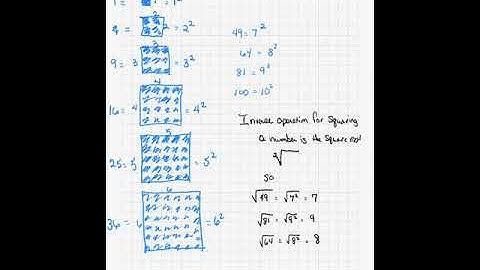 1 = 1 = 1²
2
4 = 2 = 2²
3
9 = 3 = 3²
4
16 = 4 = 4²
5
25 = 5 = 5²
6
36 = 6 = 6²
49 = 7²
64 = 8²
81 = 9²
100 = 10²
Inverse operation for Squaring
a number is the Square root
²√
so
√49 = √7² = 7
√81 = √9² = 9
√64 = √8² = 8